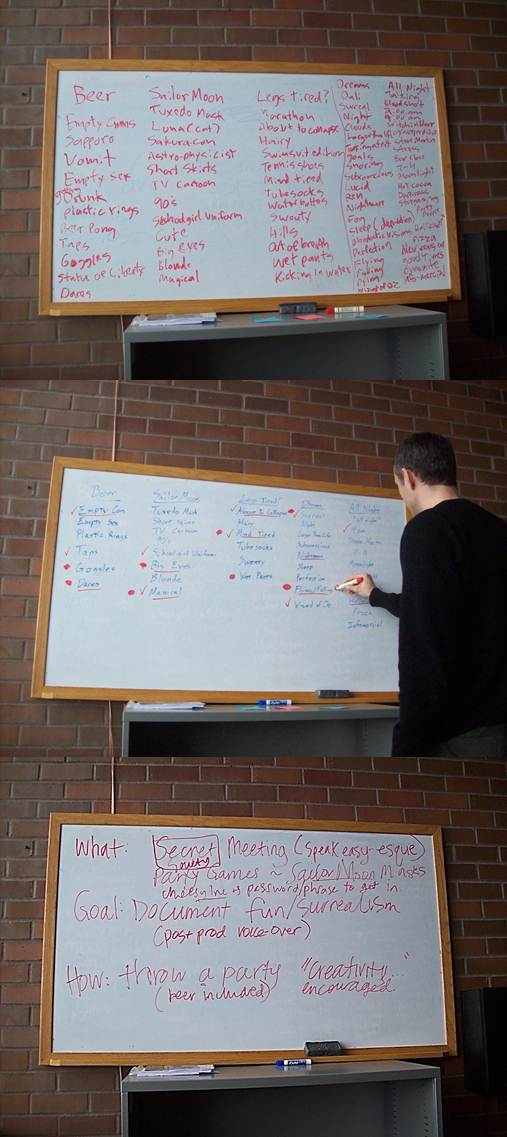 Beer
Empty Cans
Sapporo
Vomit
Empty Sex
Drunk
Plastic rings
Beer Pong
Taps
Goggles
Statue of Liberty
Dares
Sailor Moon
Tuxedo Mask
Luna (cat)
Sakura-con
Astro-physicist
Short Skirts
TV Cartoon
90's
School girl Uniform
Cute
Big eyes
Blonde
Magical
Legs tired?
Marathon
About to collapse
Hairy
Swimsuit edition
Tennis shoes
Mind tired
Tube socks
Water bottles
Sweaty
Hills
Out of breath
Wet pants
Kicking in water
Dreams
Dali
Surreal
Night
Clouds
Larger than life
Goals
Smoking
Subconscious
Lucid
REM
Nightmare
Fog
Sleep (depravation)
Perfection
Flying
Falling
Dying
Wizard of OZ
All Night
Talking
Bloodshot
Steve Martin
Stress
Moonlight
Hot cocoa
Darkness
Party
Pizza
Good Times
Dynomite
Infomercial
Beer
Empty Can
Empty Sex
Plastic Rings
Taps
Goggles
Dares
Sailor Moon
Tuxedo Mask
Short Skirts
TV Cartoon
90's
School girl Uniform
Big Eyes
Blonde
Magical
Legs Tired?
About to Collapse
Hairy
Mind Tired
Tube socks
Sweaty
Wet Pants
Dreams
Surreal
Night
Larger Than Life
Subconscious
Nightmare
Sleep
Perfection
Flying/Falling
Wizard of Oz
All Night
Steve Martin
Moonlight
Pizza
Infomercial
What: Secret Meeting (speak easy-esque)
Party Games ~ Sailor Moon Masks
cheesy line of password/phrase to get in
Goal: Document fun/surrealism
(post prod voice-over)
How: throw a party "Creativity..."
(beer included) encouraged